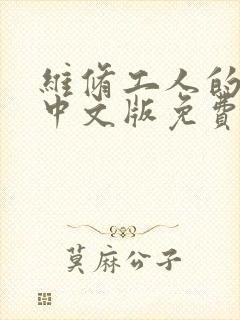 維脩工人的
中文版免費
莫麻公子